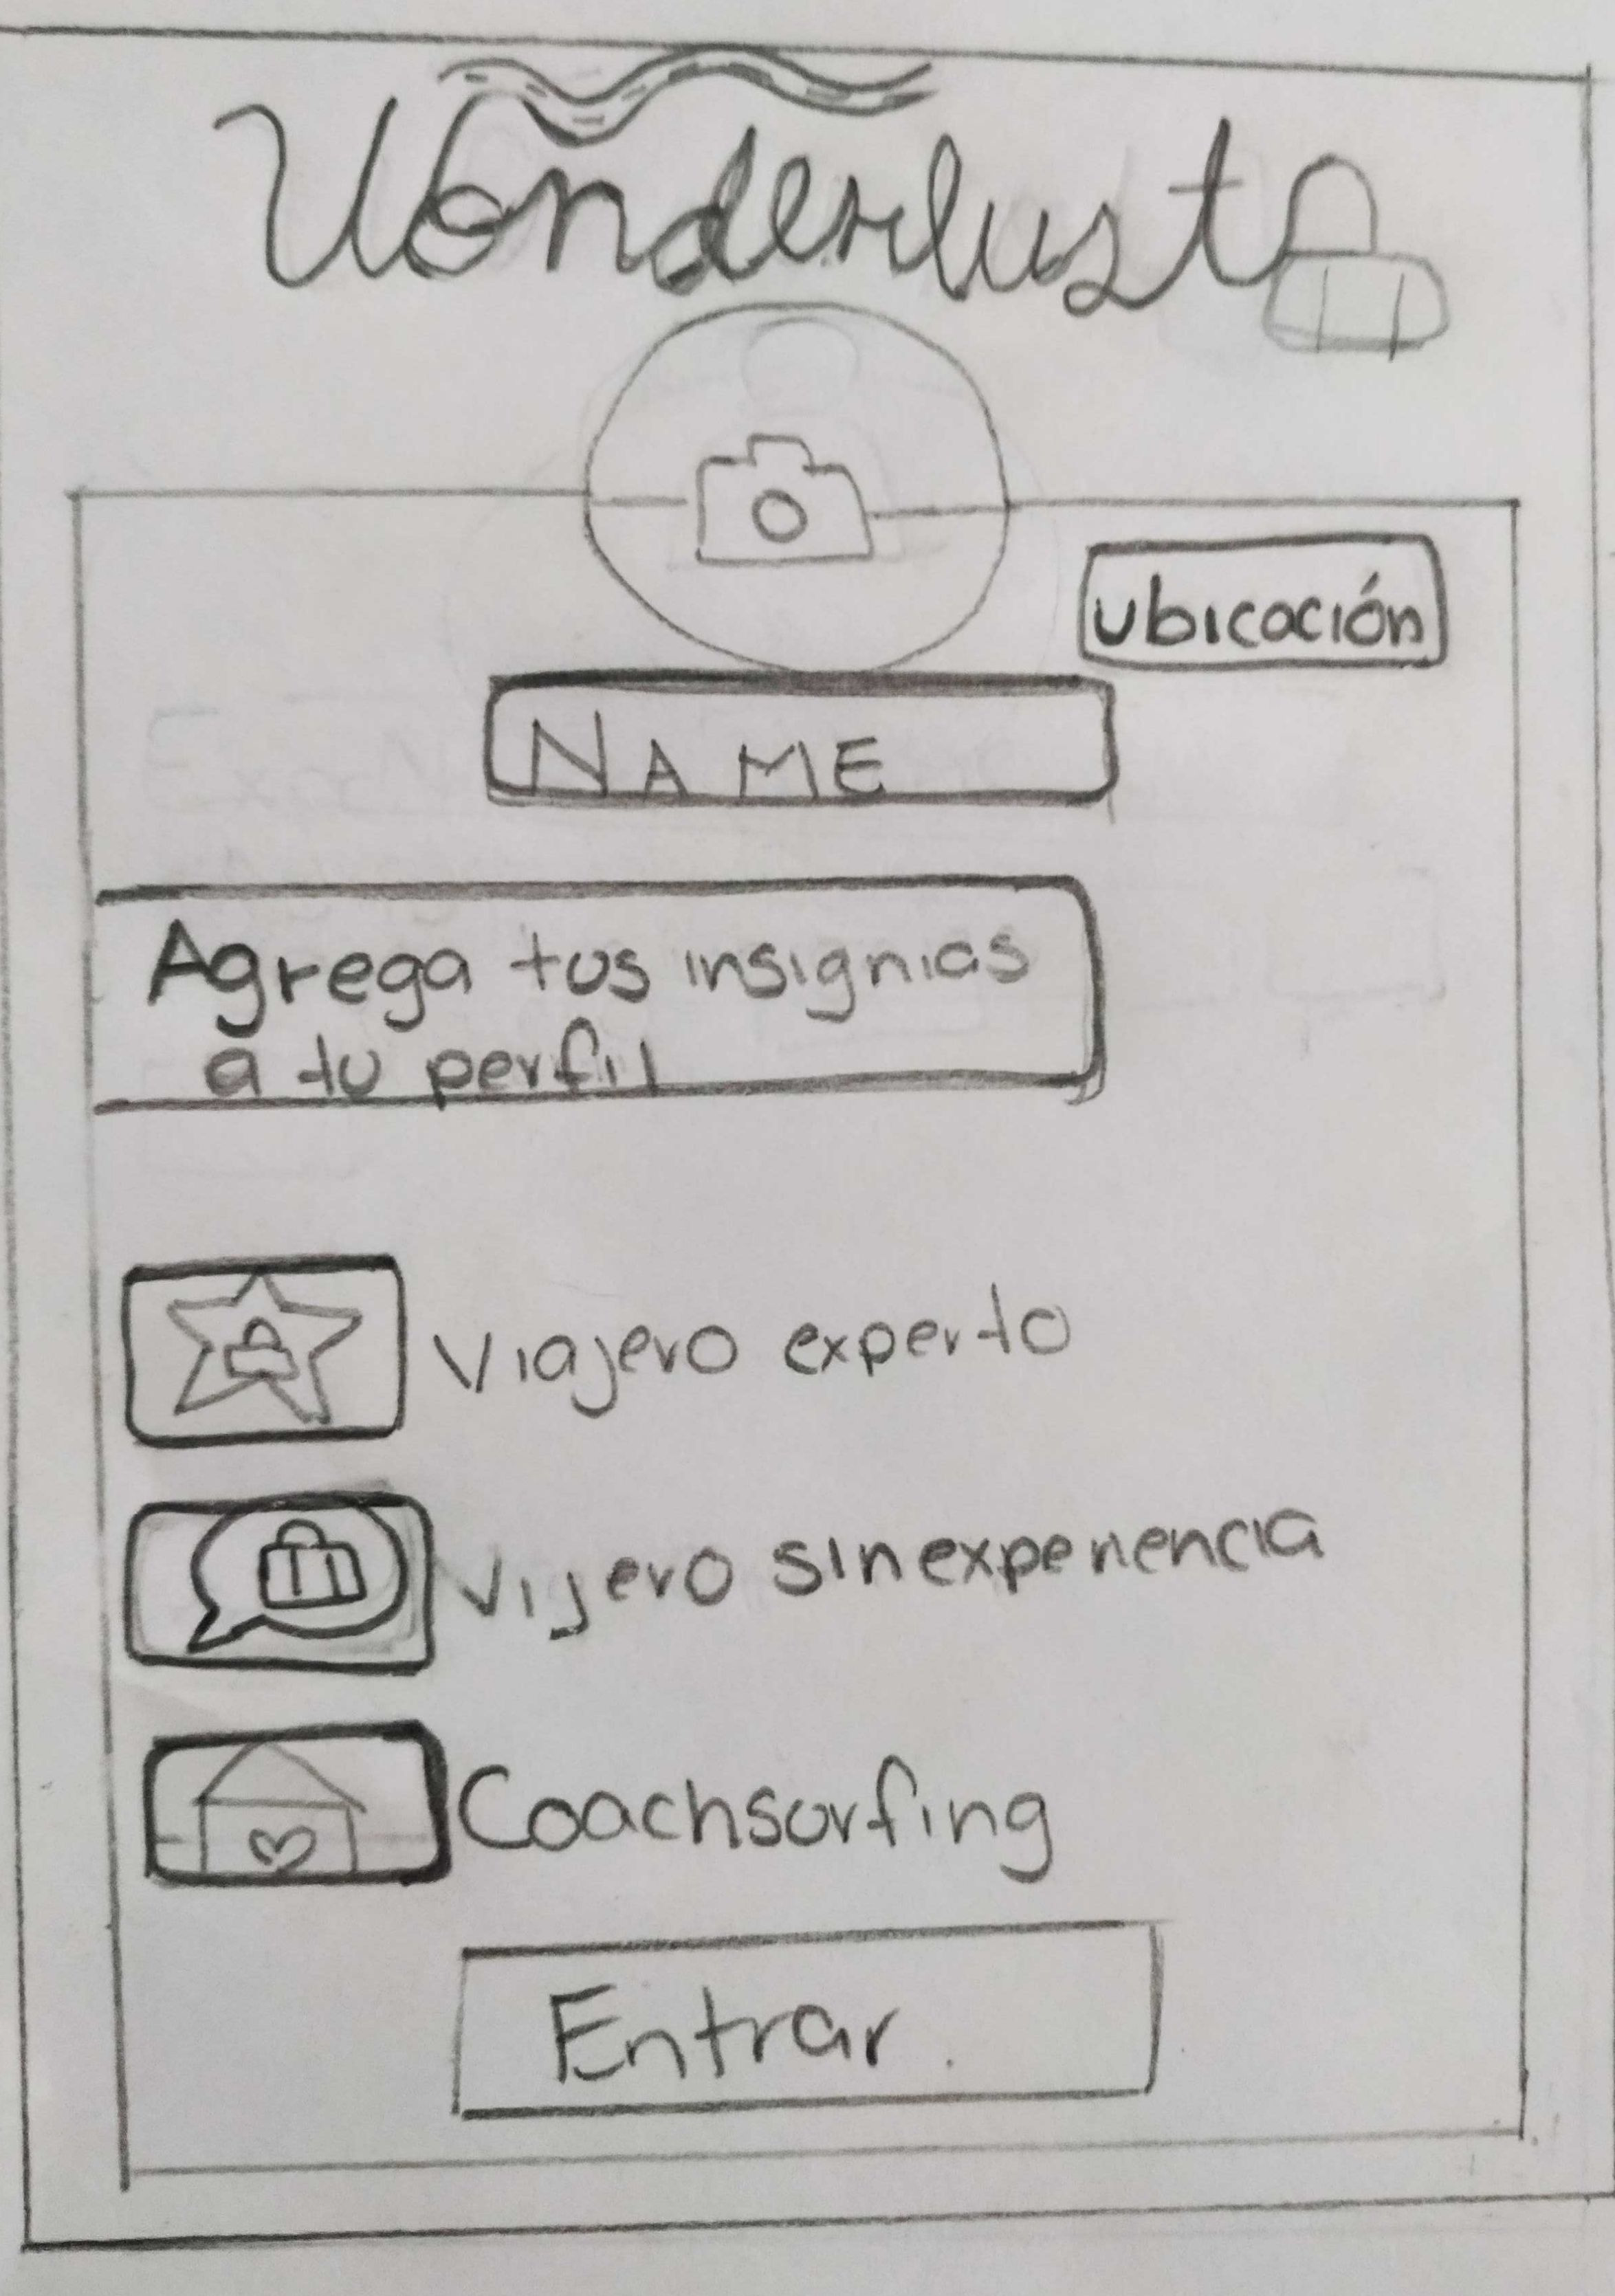 Wonderlust
ubicación
NAME
Agrega tus insignias
a tu perfil
Viajero experto
Vijero sin experiencia
Coachsurfing
Entrar.